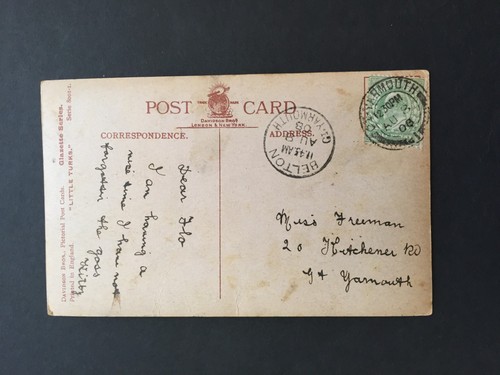 Davidson Bros., Pictorial Post Cards. Glazette Series.
Printed in England. "LITTLE TURKS." Serie
POST CARD
TRADE MARK
DAVIDSON BROS
LONDON & NEW YORK.
CORRESPONDENCE.
ADDRESS.
Dear Flo
I am having a
nice time I have not
forgotten the
BELTON
11.45 AM
AU 9
08
GT YARMOUTH
YARMOUTH
12.30 PM
08
Miss Freeman
20 Kitchener Rd
Gt Yarmouth